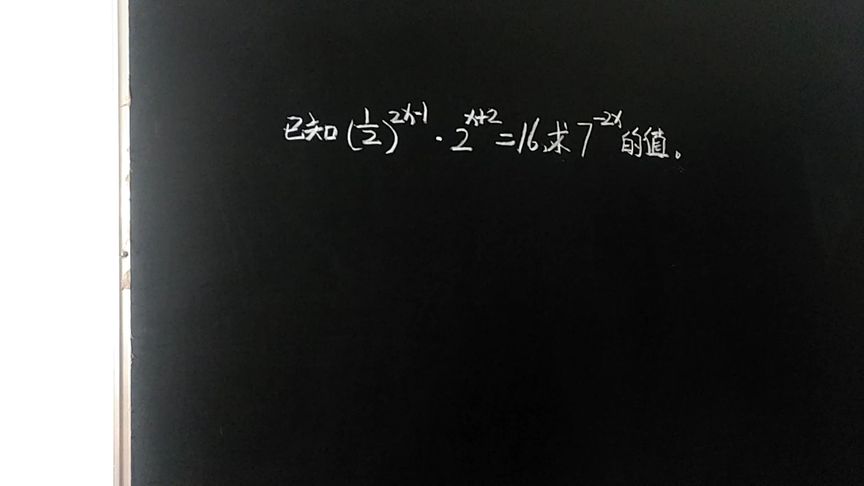 已知(1/2)^{2x-1}·2^{x+2}=16,求7^{-2x}的值。